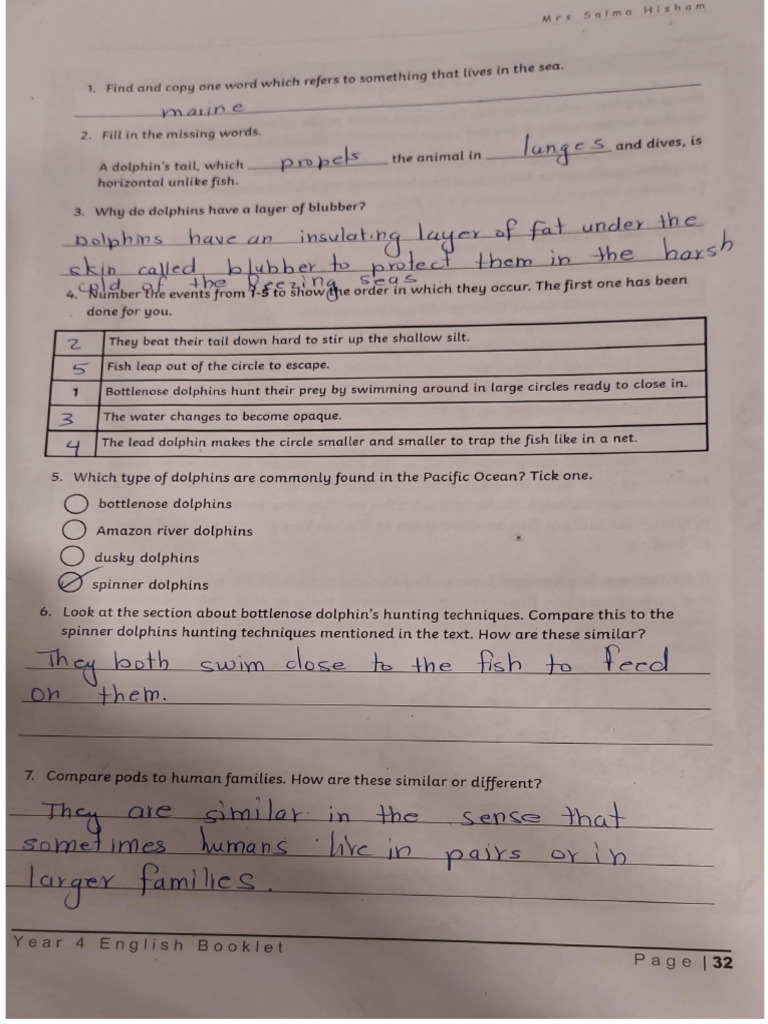 Mrs Salma Hisham
1. Find and copy one word which refers to something that lives in the sea.
marine
2. Fill in the missing words.
A dolphin's tail, which propels the animal in lunges and dives, is
horizontal unlike fish.
3. Why do dolphins have a layer of blubber?
Dolphins have an insulating layer of fat under the
skin called blubber to protect them in the harsh
cold of the freezing seas
4. Number the events from 1-5 to show the order in which they occur. The first one has been
done for you.
2 They beat their tail down hard to stir up the shallow silt.
5 Fish leap out of the circle to escape.
1 Bottlenose dolphins hunt their prey by swimming around in large circles ready to close in.
3 The water changes to become opaque.
4 The lead dolphin makes the circle smaller and smaller to trap the fish like in a net.
5. Which type of dolphins are commonly found in the Pacific Ocean? Tick one.
bottlenose dolphins
Amazon river dolphins
dusky dolphins
spinner dolphins
6. Look at the section about bottlenose dolphin's hunting techniques. Compare this to the
spinner dolphins hunting techniques mentioned in the text. How are these similar?
They both swim close to the fish to feed
on them.
7. Compare pods to human families. How are these similar or different?
They are similar in the sense that
sometimes humans live in pairs or in
larger families.
Year 4 English Booklet
Page | 32